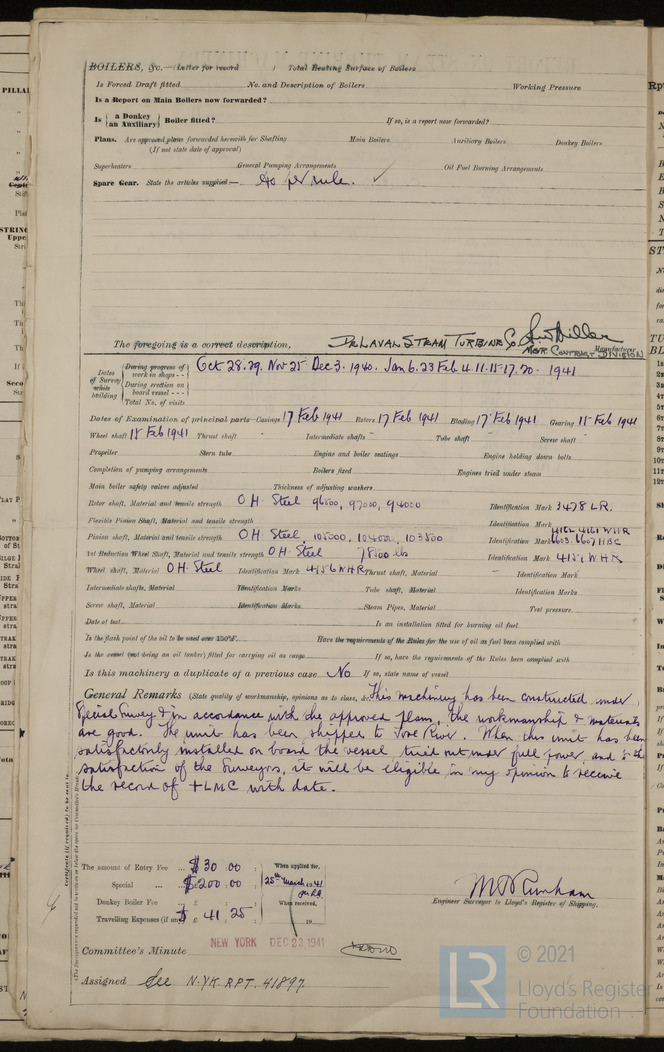 BOILERS, &c.—(Letter for record ) Total Heating Surface of Boilers
Is Forced Draft fitted No. and Description of Boilers Working Pressure
Is a Report on Main Boilers now forwarded?
Is { a Donkey / an Auxiliary } Boiler fitted? If so, is a report now forwarded?
Plans. Are approved plans forwarded herewith for Shafting Main Boilers Auxiliary Boilers Donkey Boilers
(If not state date of approval)
Superheaters General Pumping Arrangements Oil Fuel Burning Arrangements
Spare Gear. State the articles supplied— As per rule. ✓
The foregoing is a correct description, DE LAVAL STEAM TURBINE Co
Manufacturer
MGR CONTRACT DIVISION
Dates of Survey while building
During progress of work in shops - - Oct 28. 29. Nov 25 Dec 3. 1940. Jan 6. 23 Feb 4. 11. 15. 17. 20 - 1941
During erection on board vessel - - -
Total No. of visits
Dates of Examination of principal parts—Casings 17 Feb 1941 Rotors 17 Feb 1941 Blading 17 Feb 1941 Gearing 15 Feb 1941
Wheel shaft 15 Feb 1941 Thrust shaft Intermediate shafts Tube shaft Screw shaft
Propeller Stern tube Engine and boiler seatings Engine holding down bolts
Completion of pumping arrangements Boilers fixed Engines tried under steam
Main boiler safety valves adjusted Thickness of adjusting washers
Rotor shaft, Material and tensile strength O.H. Steel 96500, 97000, 94000 Identification Mark 3478 LR.
Flexible Pinion Shaft, Material and tensile strength Identification Mark
Pinion shaft, Material and tensile strength O.H. Steel, 105000, 104000, 103500 Identification Mark 6603. 6607 HBC
1st Reduction Wheel Shaft, Material and tensile strength O.H. Steel 78500 lb Identification Mark 4151 WHR
Wheel shaft, Material O.H. Steel Identification Mark 4156 WHR Thrust shaft, Material Identification Mark
Intermediate shafts, Material Identification Marks Tube shaft, Material Identification Marks
Screw shaft, Material Identification Marks Steam Pipes, Material Test pressure
Date of test Is an installation fitted for burning oil fuel
Is the flash point of the oil to be used over 150°F. Have the requirements of the Rules for the use of oil as fuel been complied with
Is the vessel (not being an oil tanker) fitted for carrying oil as cargo If so, have the requirements of the Rules been complied with
Is this machinery a duplicate of a previous case No If so, state name of vessel
General Remarks (State quality of workmanship, opinions as to class, &c. This machinery has been constructed under
Special Survey & in accordance with the approved plans, the workmanship & materials
are good. The unit has been shipped to River. When this unit has been
satisfactorily installed on board the vessel tried out under full power, and to the
satisfaction of the Surveyors, it will be eligible in my opinion to receive
the record of +LMC with date.
The amount of Entry Fee ... $ 30 : 00 When applied for,
Special ... $ 200 : 00 25th March 1941
Donkey Boiler Fee ... When received,
Travelling Expenses (if any) $ 41 : 25 19
Engineer Surveyor to Lloyd's Register of Shipping.
NEW YORK DEC 23 1941
Committee's Minute
Assigned See N.YK. RPT. 41897.
© 2021
LR Lloyd's Register
Foundation